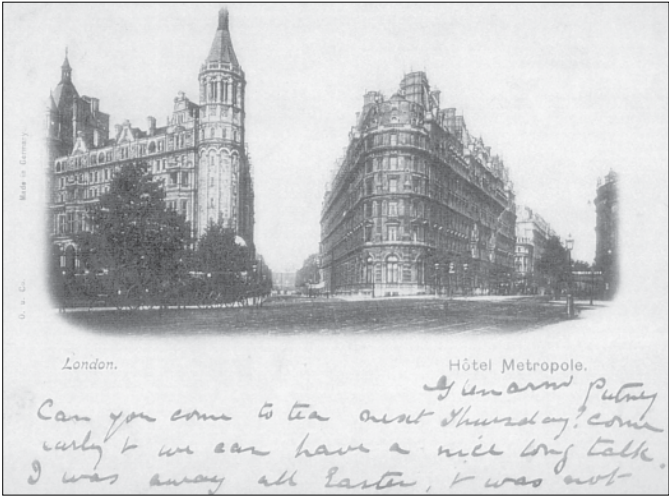 Made in Germany.
London.
Hôtel Metropole.
Putney
Can you come to tea next Thursday? come
early & we can have a nice long talk.
I was away all Easter, & was not